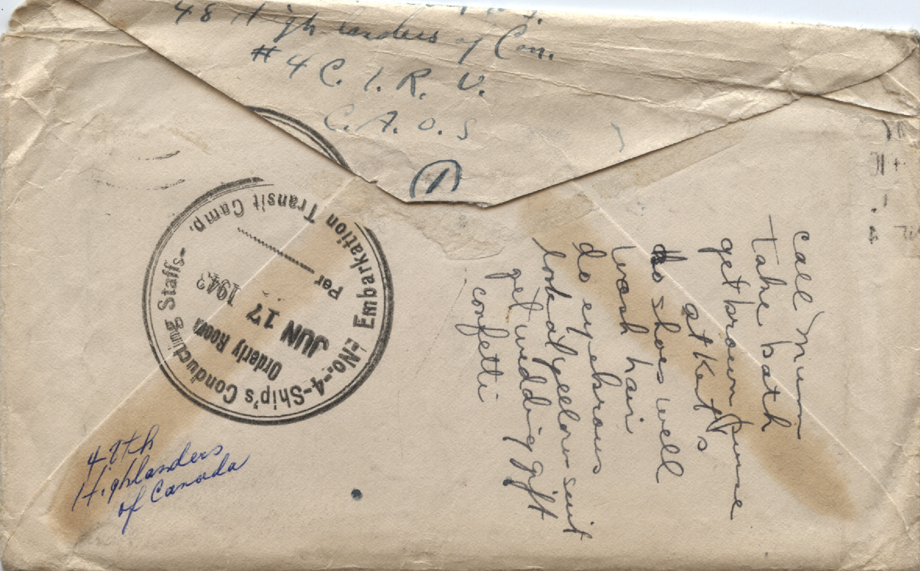 48 Highlanders of Can.
#4 C. I. R. U.
C. A. O. S
1
-No.-4-Ship's Conducting Staffs-
Embarkation Transit Camp.
Orderly Room
JUN 17
1943
Per
48th
Highlanders
of Canada
call mum
take bath
get brown purse
at
do shoes well
wash hair
do eyebrows
look at yellow suit
get wedding gift
confetti